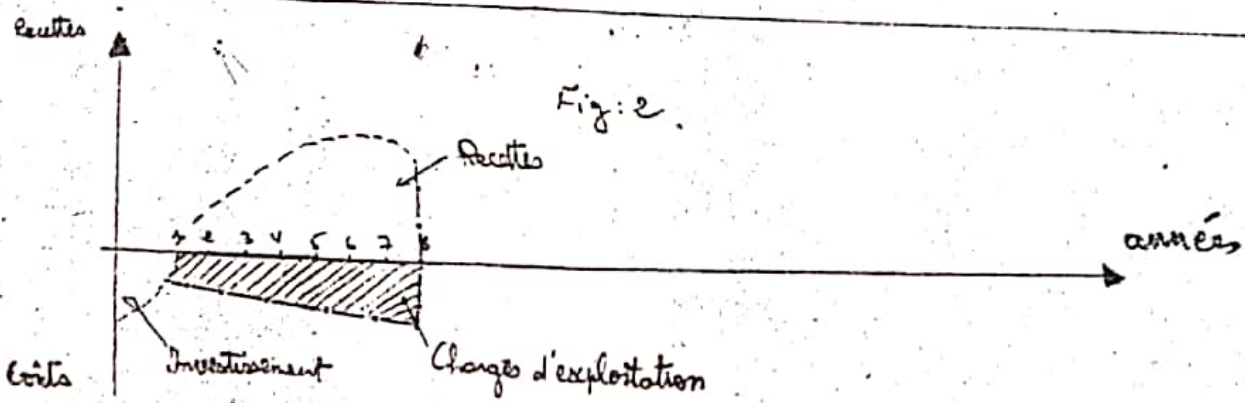 Recettes
Fig: 2.
Recettes
1 2 3 4 5 6 7 8
années
Investissement
Charges d'exploitation
Coûts